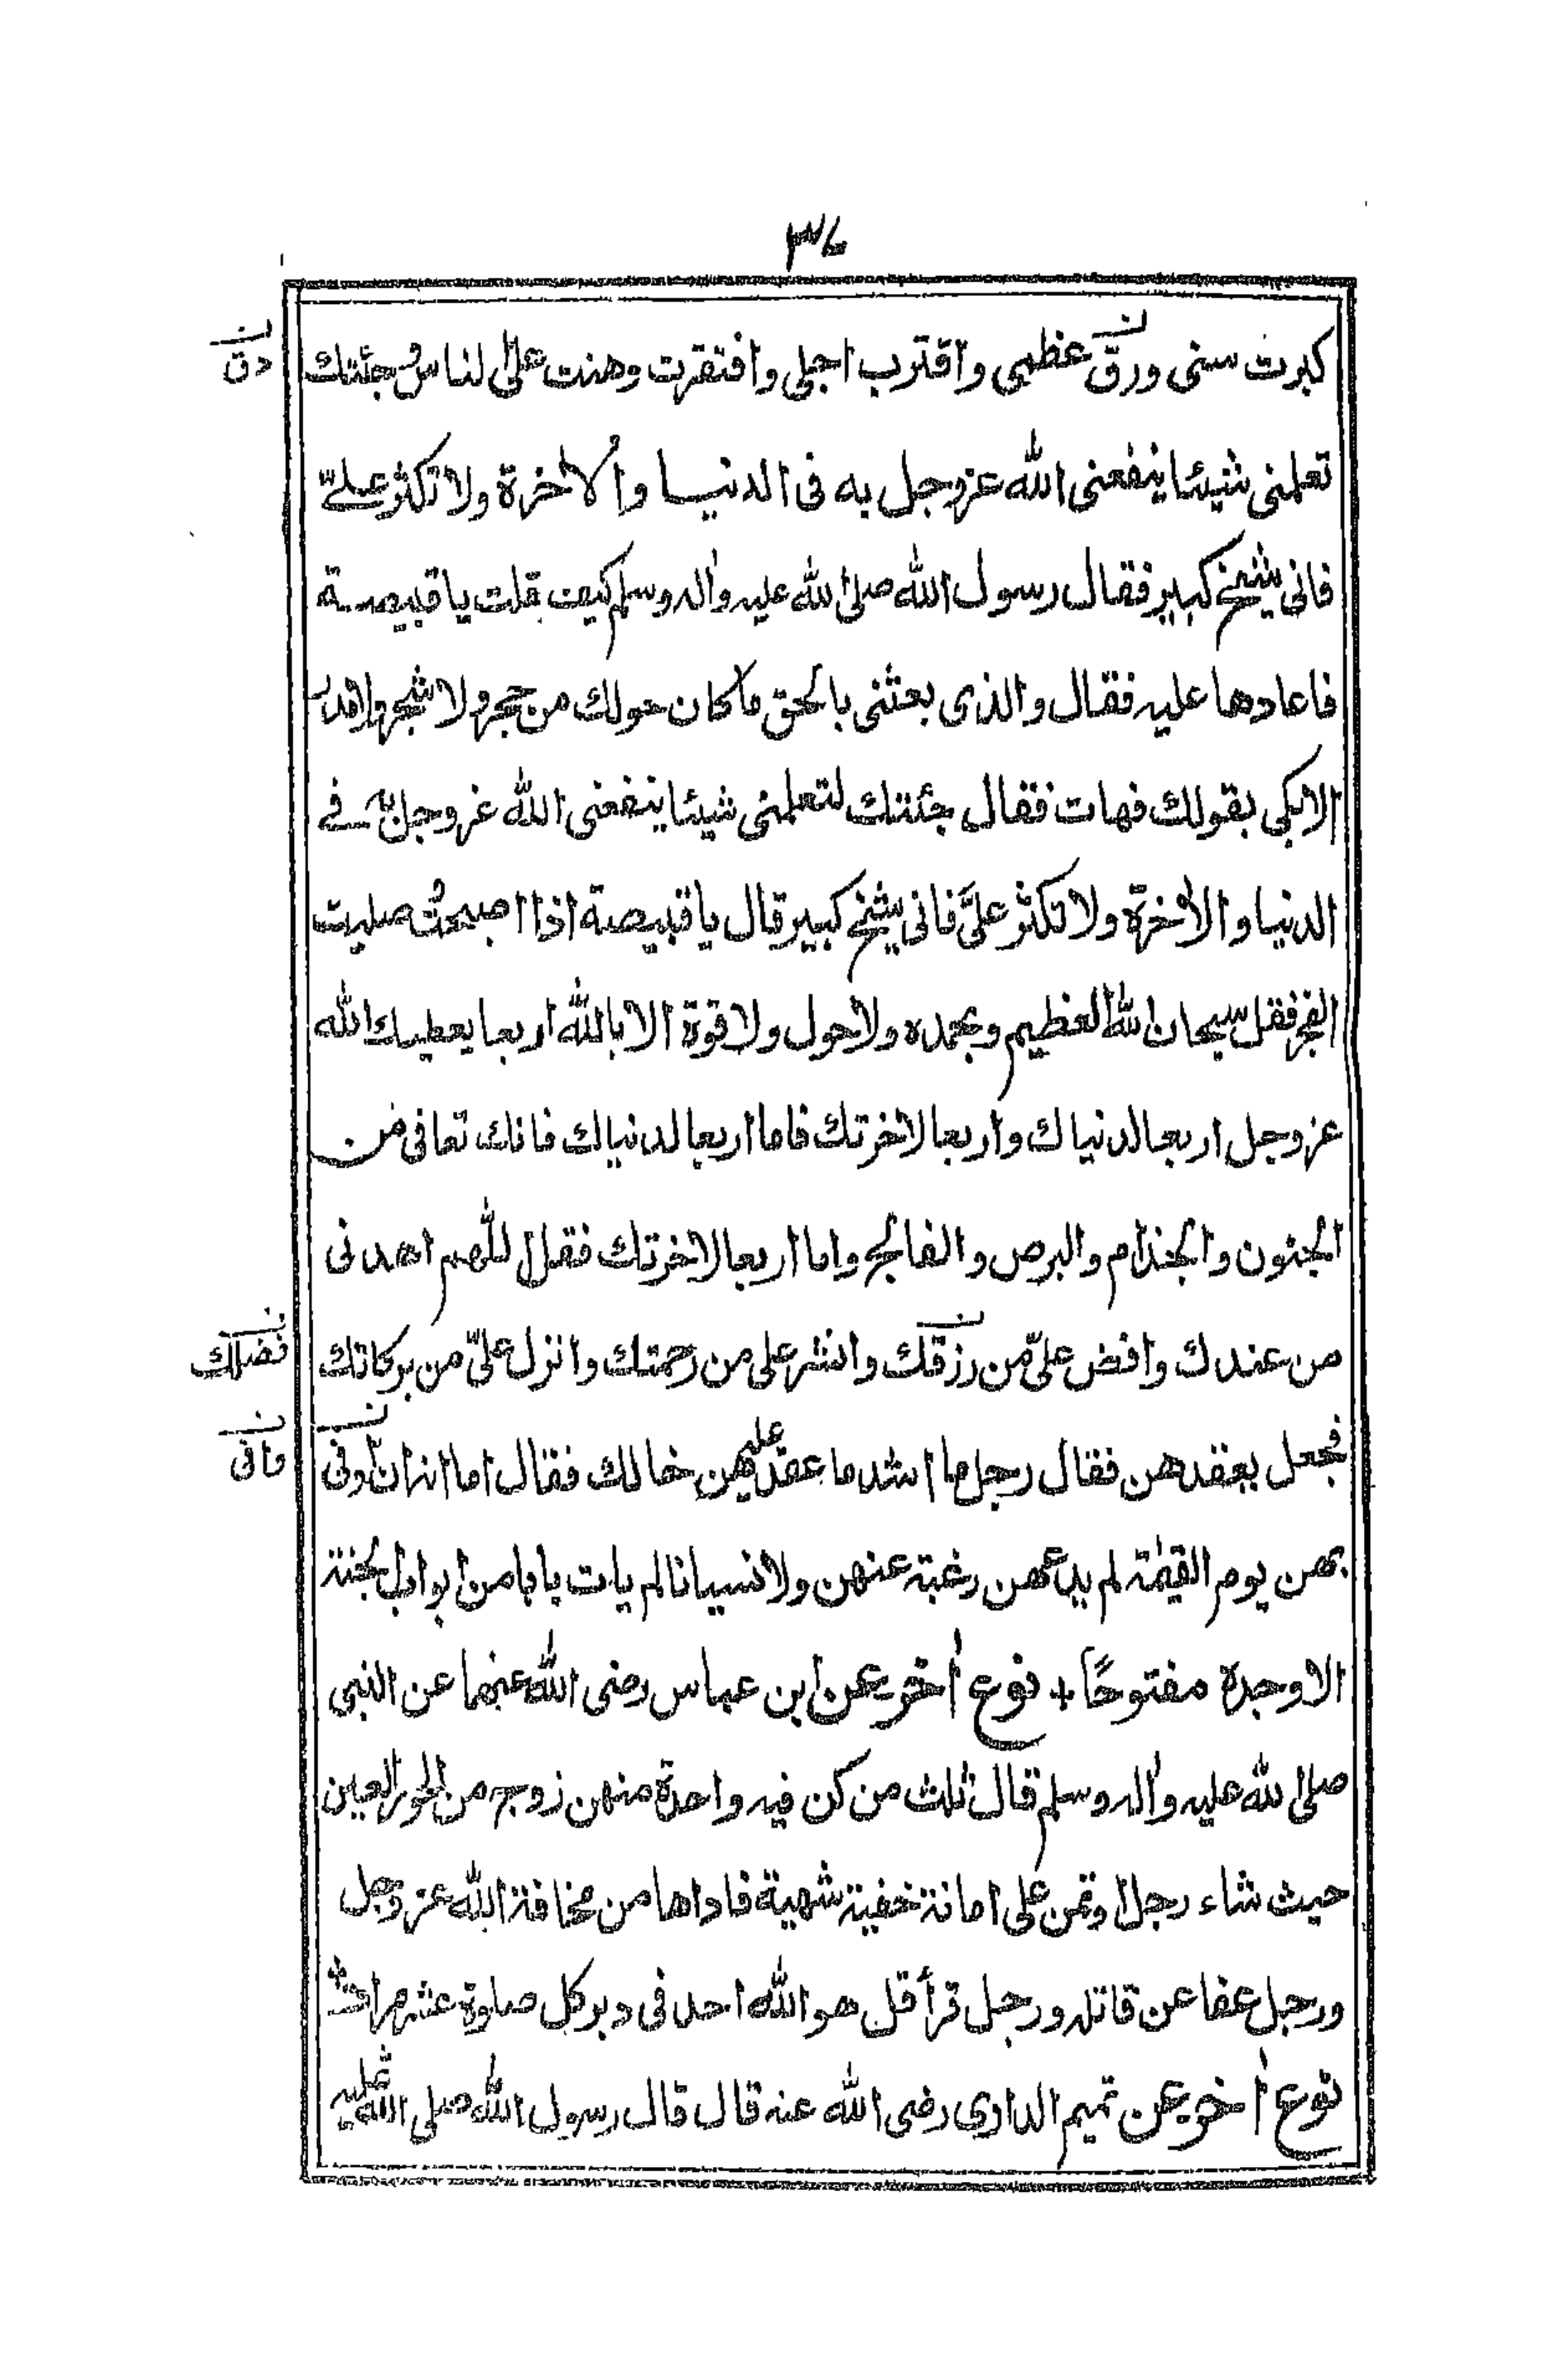 ٣٧
كبرت سنى ورق عظمى واقترب اجلى وافتقرت وهنت على الناس وجئتك
دق
تعلمنى شيئا ينفعنى الله عزوجل به فى الدنيا والاٰخرة ولا تكثر علىّ
فانى شيخ كبير فقال رسول الله صلى الله عليه واٰله وسلم كيف قلت يا قبيصة
فاعادها عليه فقال والذى بعثنى بالحق ما كان حولك من حجر ولا شجر ولا مدر
الا بكى بقولك فهات فقال جئتك لتعلمنى شيئا ينفعنى الله عزوجل به فى
الدنيا والاٰخرة ولا تكثر علىّ فانى شيخ كبير قال يا قبيصة اذا اصبحت وصليت
الفجر فقل سبحان الله العظيم وبحمده ولا حول ولا قوة الا بالله اربعا يعطيك الله
عزوجل اربعا لدنياك واربعا لاٰخرتك فاما اربعا لدنياك فانك تعافى من
الجنون والجذام والبرص والفالج واما اربعا لاٰخرتك فقل اللهم اهدنى
من عندك وافض علىّ من رزقك وانشر على من رحمتك وانزل علىّ من بركاتك
فضلك
فجعل يعقدهن فقال رجل ما اشد ما عقد عليهن خالك فقال اما انه ان وفى
وافى
بهن يوم القيٰمة لم يدعهن رغبة عنهن ولا نسيانا لم يات بابا من ابواب الجنة
الا وجده مفتوحًا + نوع اٰخر عن ابن عباس رضى الله عنهما عن النبى
صلى الله عليه واٰله وسلم قال ثلث من كن فيه واحدة منهن زوج من الحور العين
حيث شاء رجل اوتمن على امانة خفية شهية فاداها من مخافة الله عزوجل
ورجل عفا عن قاتله ورجل قرأ قل هو الله احد فى دبر كل صلوة عشر مرات
نوع اٰخر عن تميم الدارى رضى الله عنه قال قال رسول الله صلى الله عليه